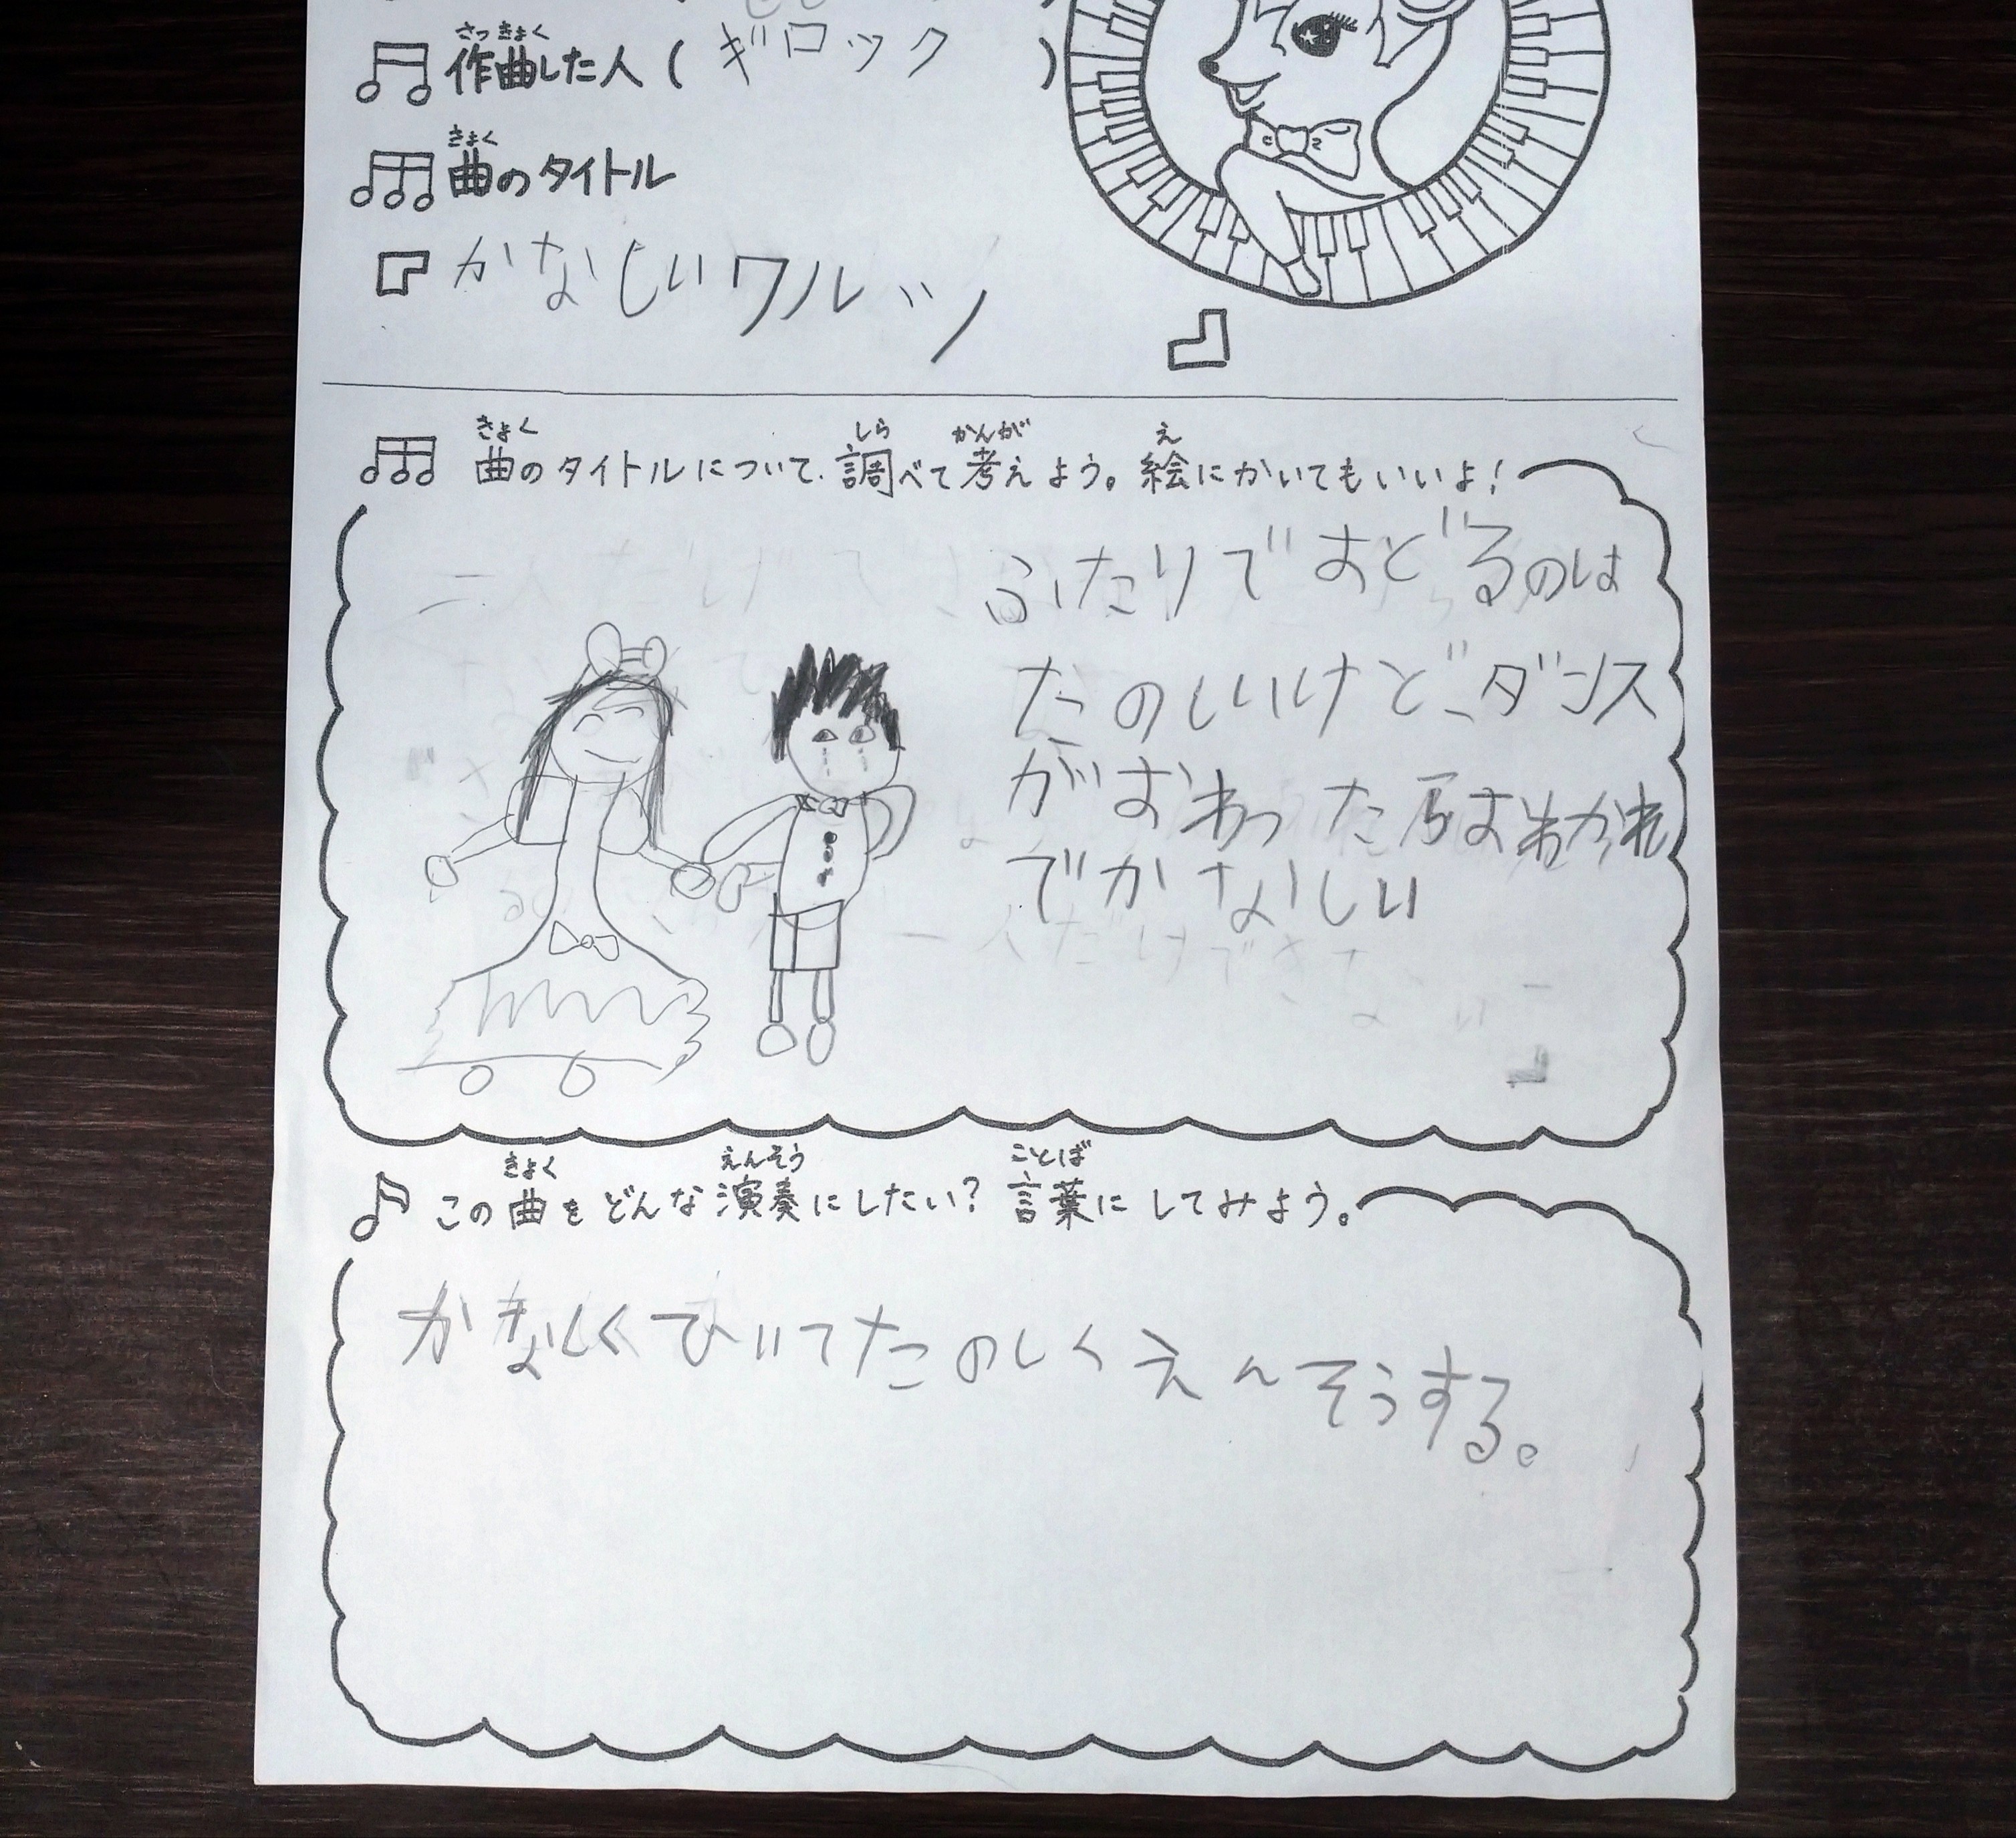 作曲した人(ギロック)
さっきょく
曲のタイトル
きょく
『かなしいワルツ』
曲のタイトルについて、調べて考えよう。絵にかいてもいいよ!
きょく しら かんが え
ふたりでおどるのは
たのしいけど、ダンス
がおわったらおわかれ
でかなしい
この曲をどんな演奏にしたい?言葉にしてみよう。
きょく えんそう ことば
かなしくひいてたのしくえんそうする。